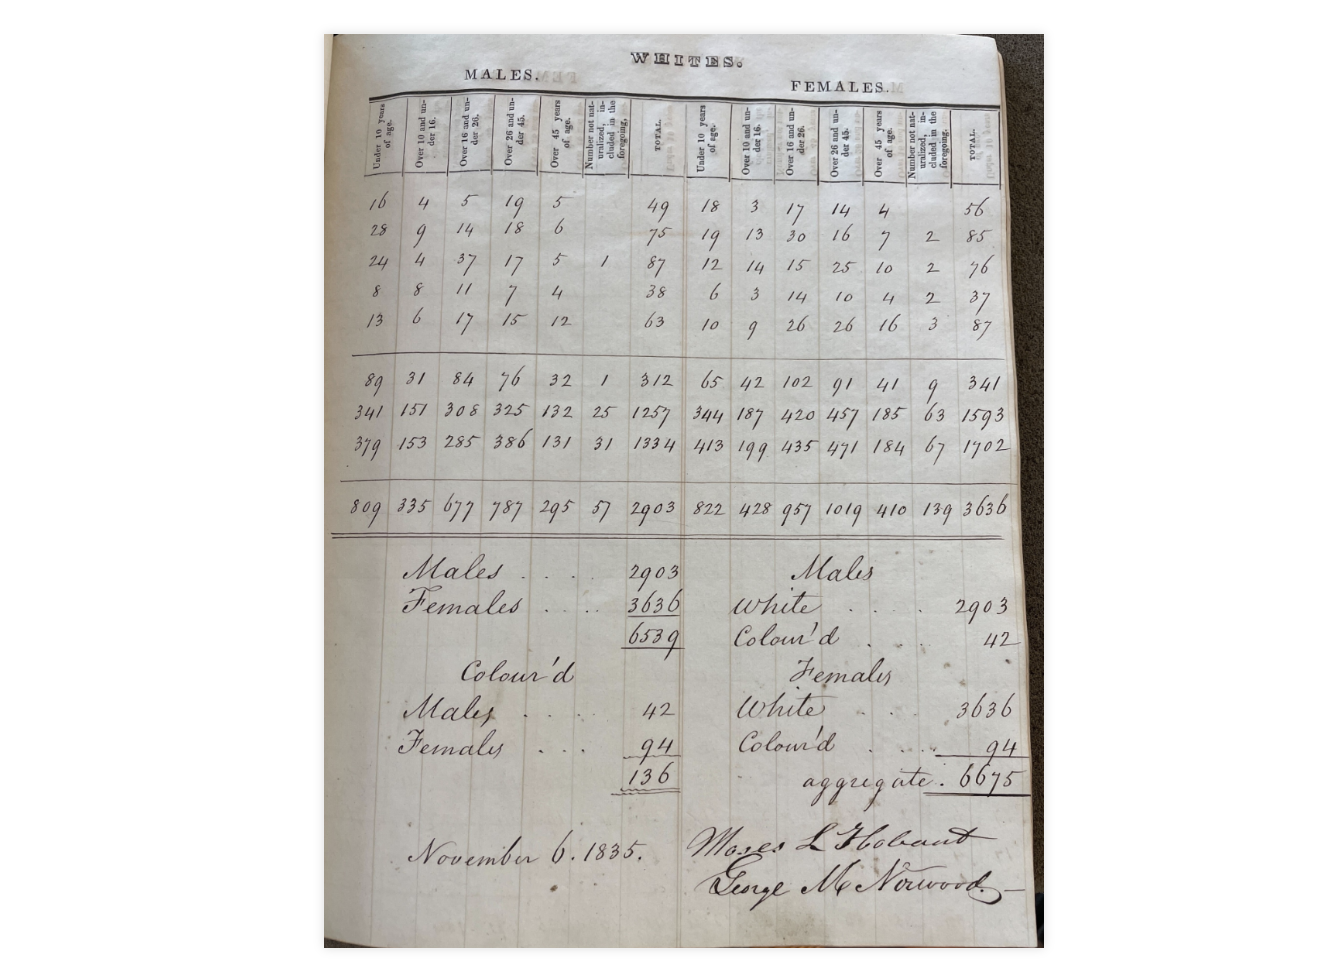 WHITES.
MALES. FEMALES.
Under 10 years of age. Over 10 and un-der 16. Over 16 and un-der 26. Over 26 and un-der 45. Over 45 years of age. Number not nat-uralized, in-cluded in the foregoing, TOTAL. Under 10 years of age. Over 10 and un-der 16. Over 16 and un-der 26. Over 26 and un-der 45. Over 45 years of age. Number not nat-uralized, in-cluded in the foregoing, TOTAL.
16 4 5 19 5 49 18 3 17 14 4 56
28 9 14 18 6 75 19 13 30 16 7 2 85
24 4 37 17 5 1 87 12 14 15 25 10 2 76
8 8 11 7 4 38 6 3 14 10 4 2 37
13 6 17 15 12 63 10 9 26 26 16 3 87
89 31 84 76 32 1 312 65 42 102 91 41 9 341
341 151 308 325 132 25 1257 344 187 420 457 185 63 1593
379 153 285 386 131 31 1334 413 199 435 471 184 67 1702
809 335 677 787 295 57 2903 822 428 957 1019 410 139 3636
Males . . . . 2903
Females . . . . 3636
6539
Colour'd
Males . . . . 42
Females . . . 94
136
Males
White . . . . 2903
Colour'd . . . 42
Females
White . . . 3636
Colour'd . . . . 94
aggregate . 6675
November 6. 1835.
Moses L Hobart
George M Norwood.